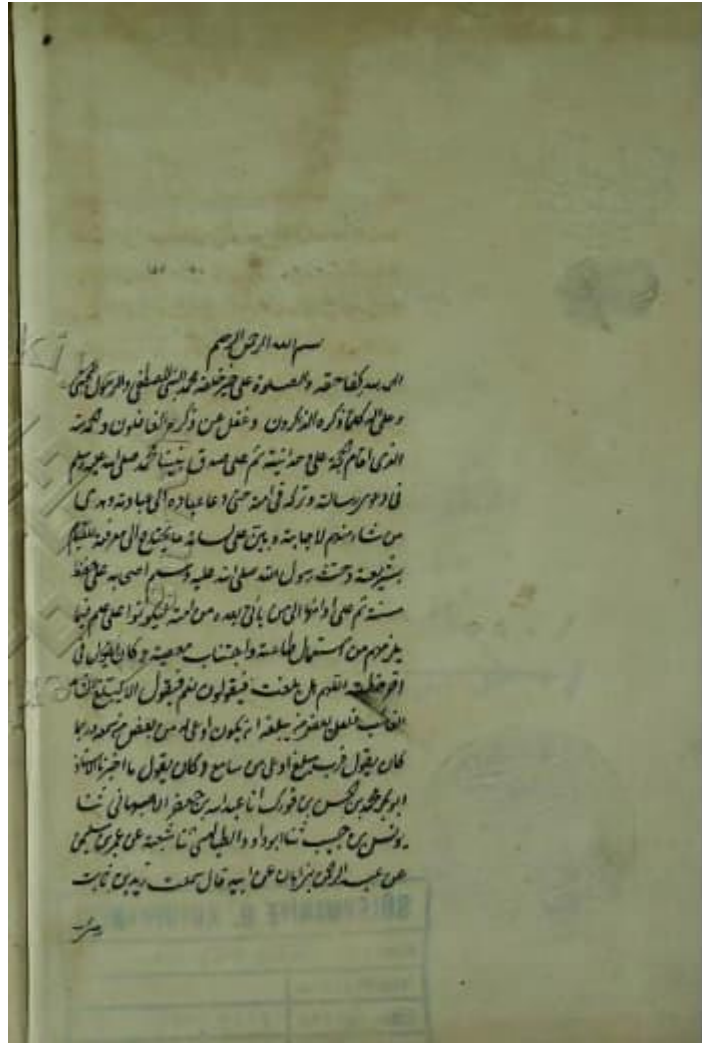 بسم الله الرحمن الرحيم
الحمد لله كفا حقه والصلوة على خير خلقه محمد النبي المصطفى والرسول المجتبى
وعلى اله كلما ذكره الذاكرون وغفل عن ذكره الغافلون والحمد لله
الذى اقام الحجة على وحدانيته ثم على صدق نبينا محمد صلى الله عليه وسلم
فى دعوى رسالته وتركه فى امته حتى دعا عباده الى عبادته وهدى
من شاء منهم لاجابته وبين على لسانه ما يحتاج الى معرفته للقيام
بشريعته وحث رسول الله صلى الله عليه وسلم اصحابه على حفظ
سنته ثم على ادائها الى من يأتى بعده من امته ليكونوا على علم فيما
يلزمهم من استعمال طاعته واجتناب معصيته وكان يقول فى
اخر خطبته اللهم هل بلغت فيقولون نعم فيقول الا ليبلغ الشاهد
الغائب فلعل بعض من يبلغه ان يكون اوعى له من بعض من سمعه وربما
كان يقول فرب مبلغ اوعى من سامع وكان يقول ما اخبرنا الاستاذ
ابو بكر محمد بن الحسن بن فورك انا عبد الله بن جعفر الاصبهانى ثنا
يونس بن حبيب ثنا ابو داود الطيالسى ثنا شعبة عن عمر بن سليمن
عن عبد الرحمن بن ابان عن ابيه قال سمعت زيد بن ثابت